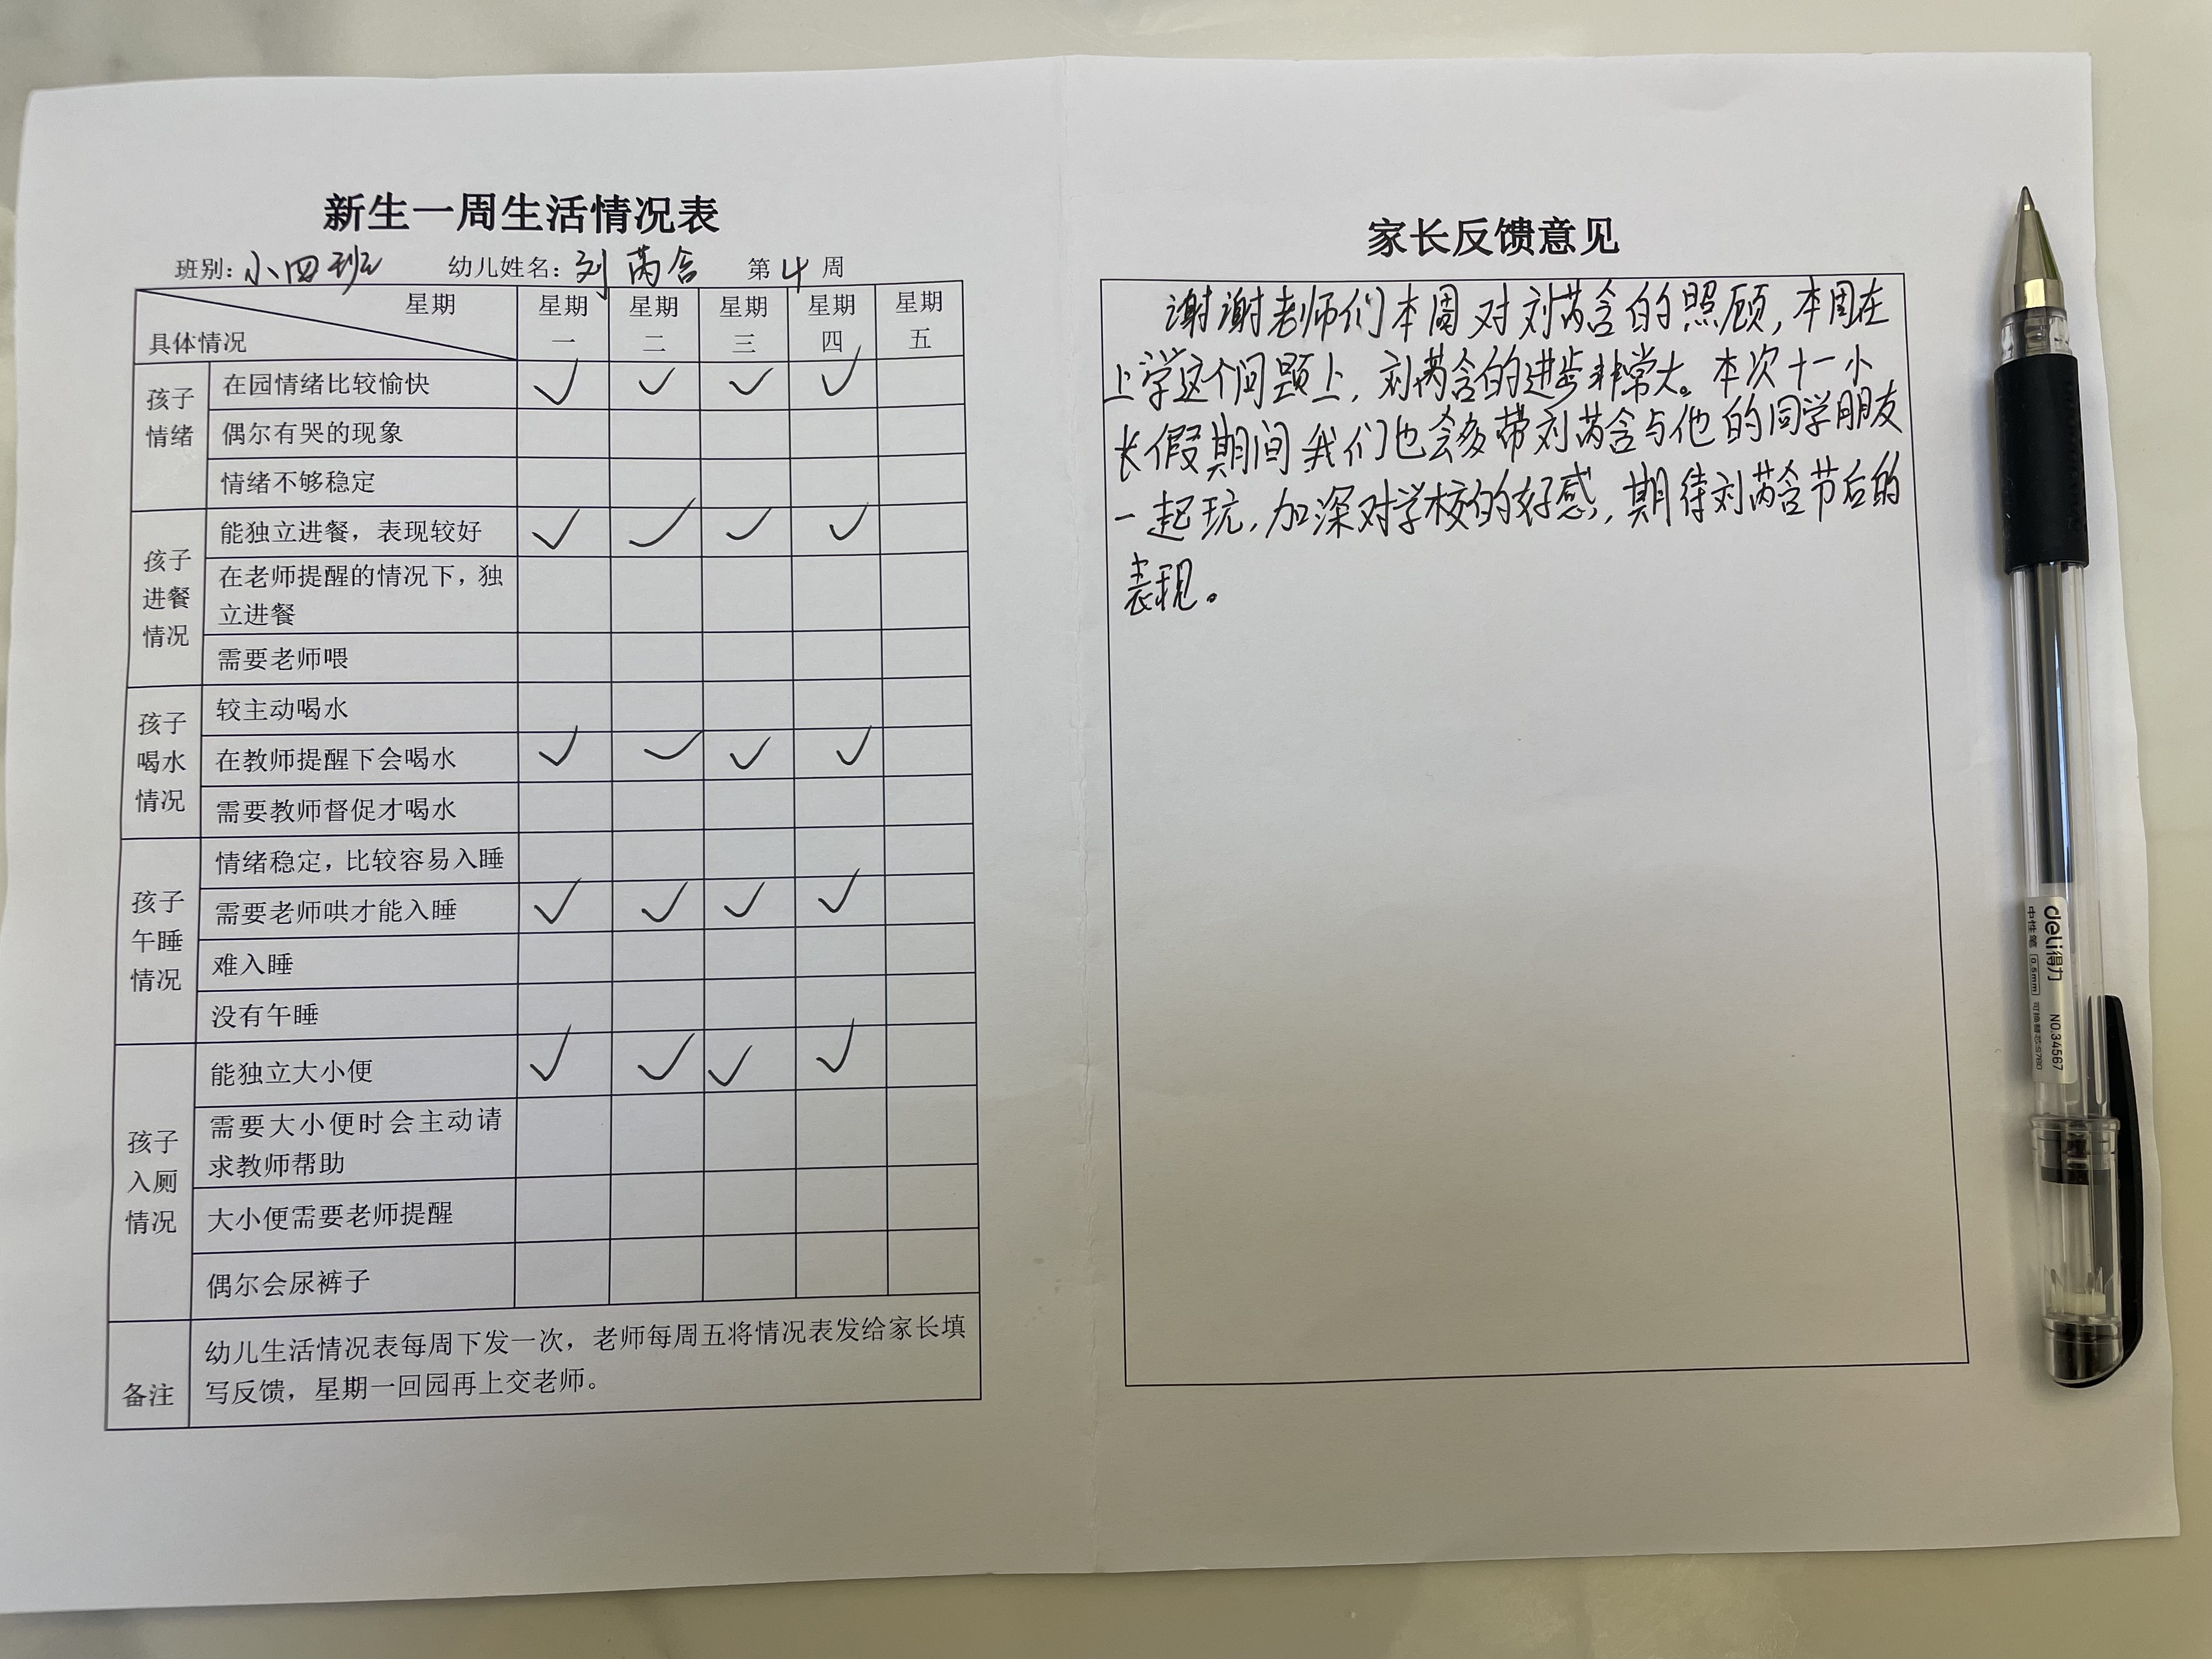 新生一周生活情况表
班别：小四班 幼儿姓名：刘芮含 第4周
星期 星期一 星期二 星期三 星期四 星期五
具体情况
孩子情绪
在园情绪比较愉快 ✓ ✓ ✓ ✓
偶尔有哭的现象
情绪不够稳定
孩子进餐情况
能独立进餐，表现较好 ✓ ✓ ✓ ✓
在老师提醒的情况下，独
立进餐
需要老师喂
孩子喝水情况
较主动喝水
在教师提醒下会喝水 ✓ ✓ ✓ ✓
需要教师督促才喝水
孩子午睡情况
情绪稳定，比较容易入睡
需要老师哄才能入睡 ✓ ✓ ✓ ✓
难入睡
没有午睡
孩子入厕情况
能独立大小便 ✓ ✓ ✓ ✓
需要大小便时会主动请
求教师帮助
大小便需要老师提醒
偶尔会尿裤子
备注
幼儿生活情况表每周下发一次，老师每周五将情况表发给家长填
写反馈，星期一回园再上交老师。
家长反馈意见
谢谢老师们本周对刘芮含的照顾，本周在
上学这个问题上，刘芮含的进步非常大。本次十一小
长假期间我们也会多带刘芮含与他的同学朋友
一起玩，加深对学校的好感，期待刘芮含节后的
表现。
deli得力 NO.34567
中性笔 0.5mm 可换替芯:S760